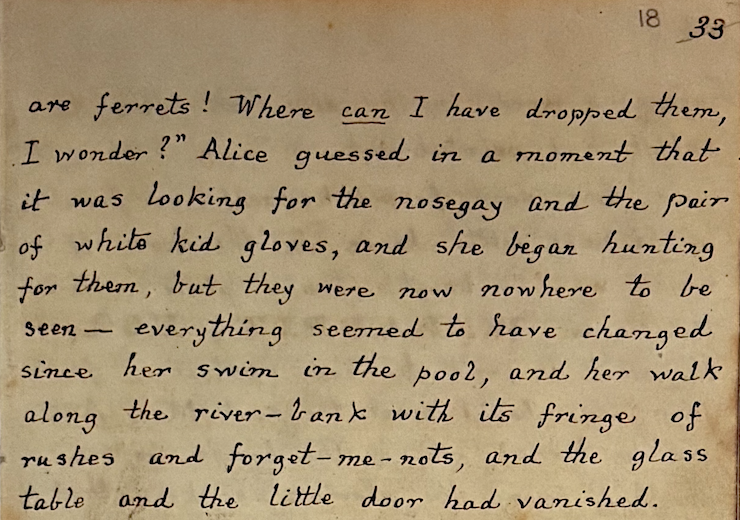 18 33
are ferrets! Where can I have dropped them,
I wonder?" Alice guessed in a moment that
it was looking for the nosegay and the pair
of white kid gloves, and she began hunting
for them, but they were now nowhere to be
seen — everything seemed to have changed
since her swim in the pool, and her walk
along the river-bank with its fringe of
rushes and forget-me-nots, and the glass
table and the little door had vanished.